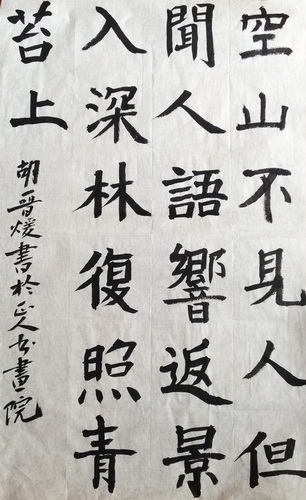 空山不見人但
聞人語響返景
入深林復照青
苔上
胡晋煖書於正人书畫院